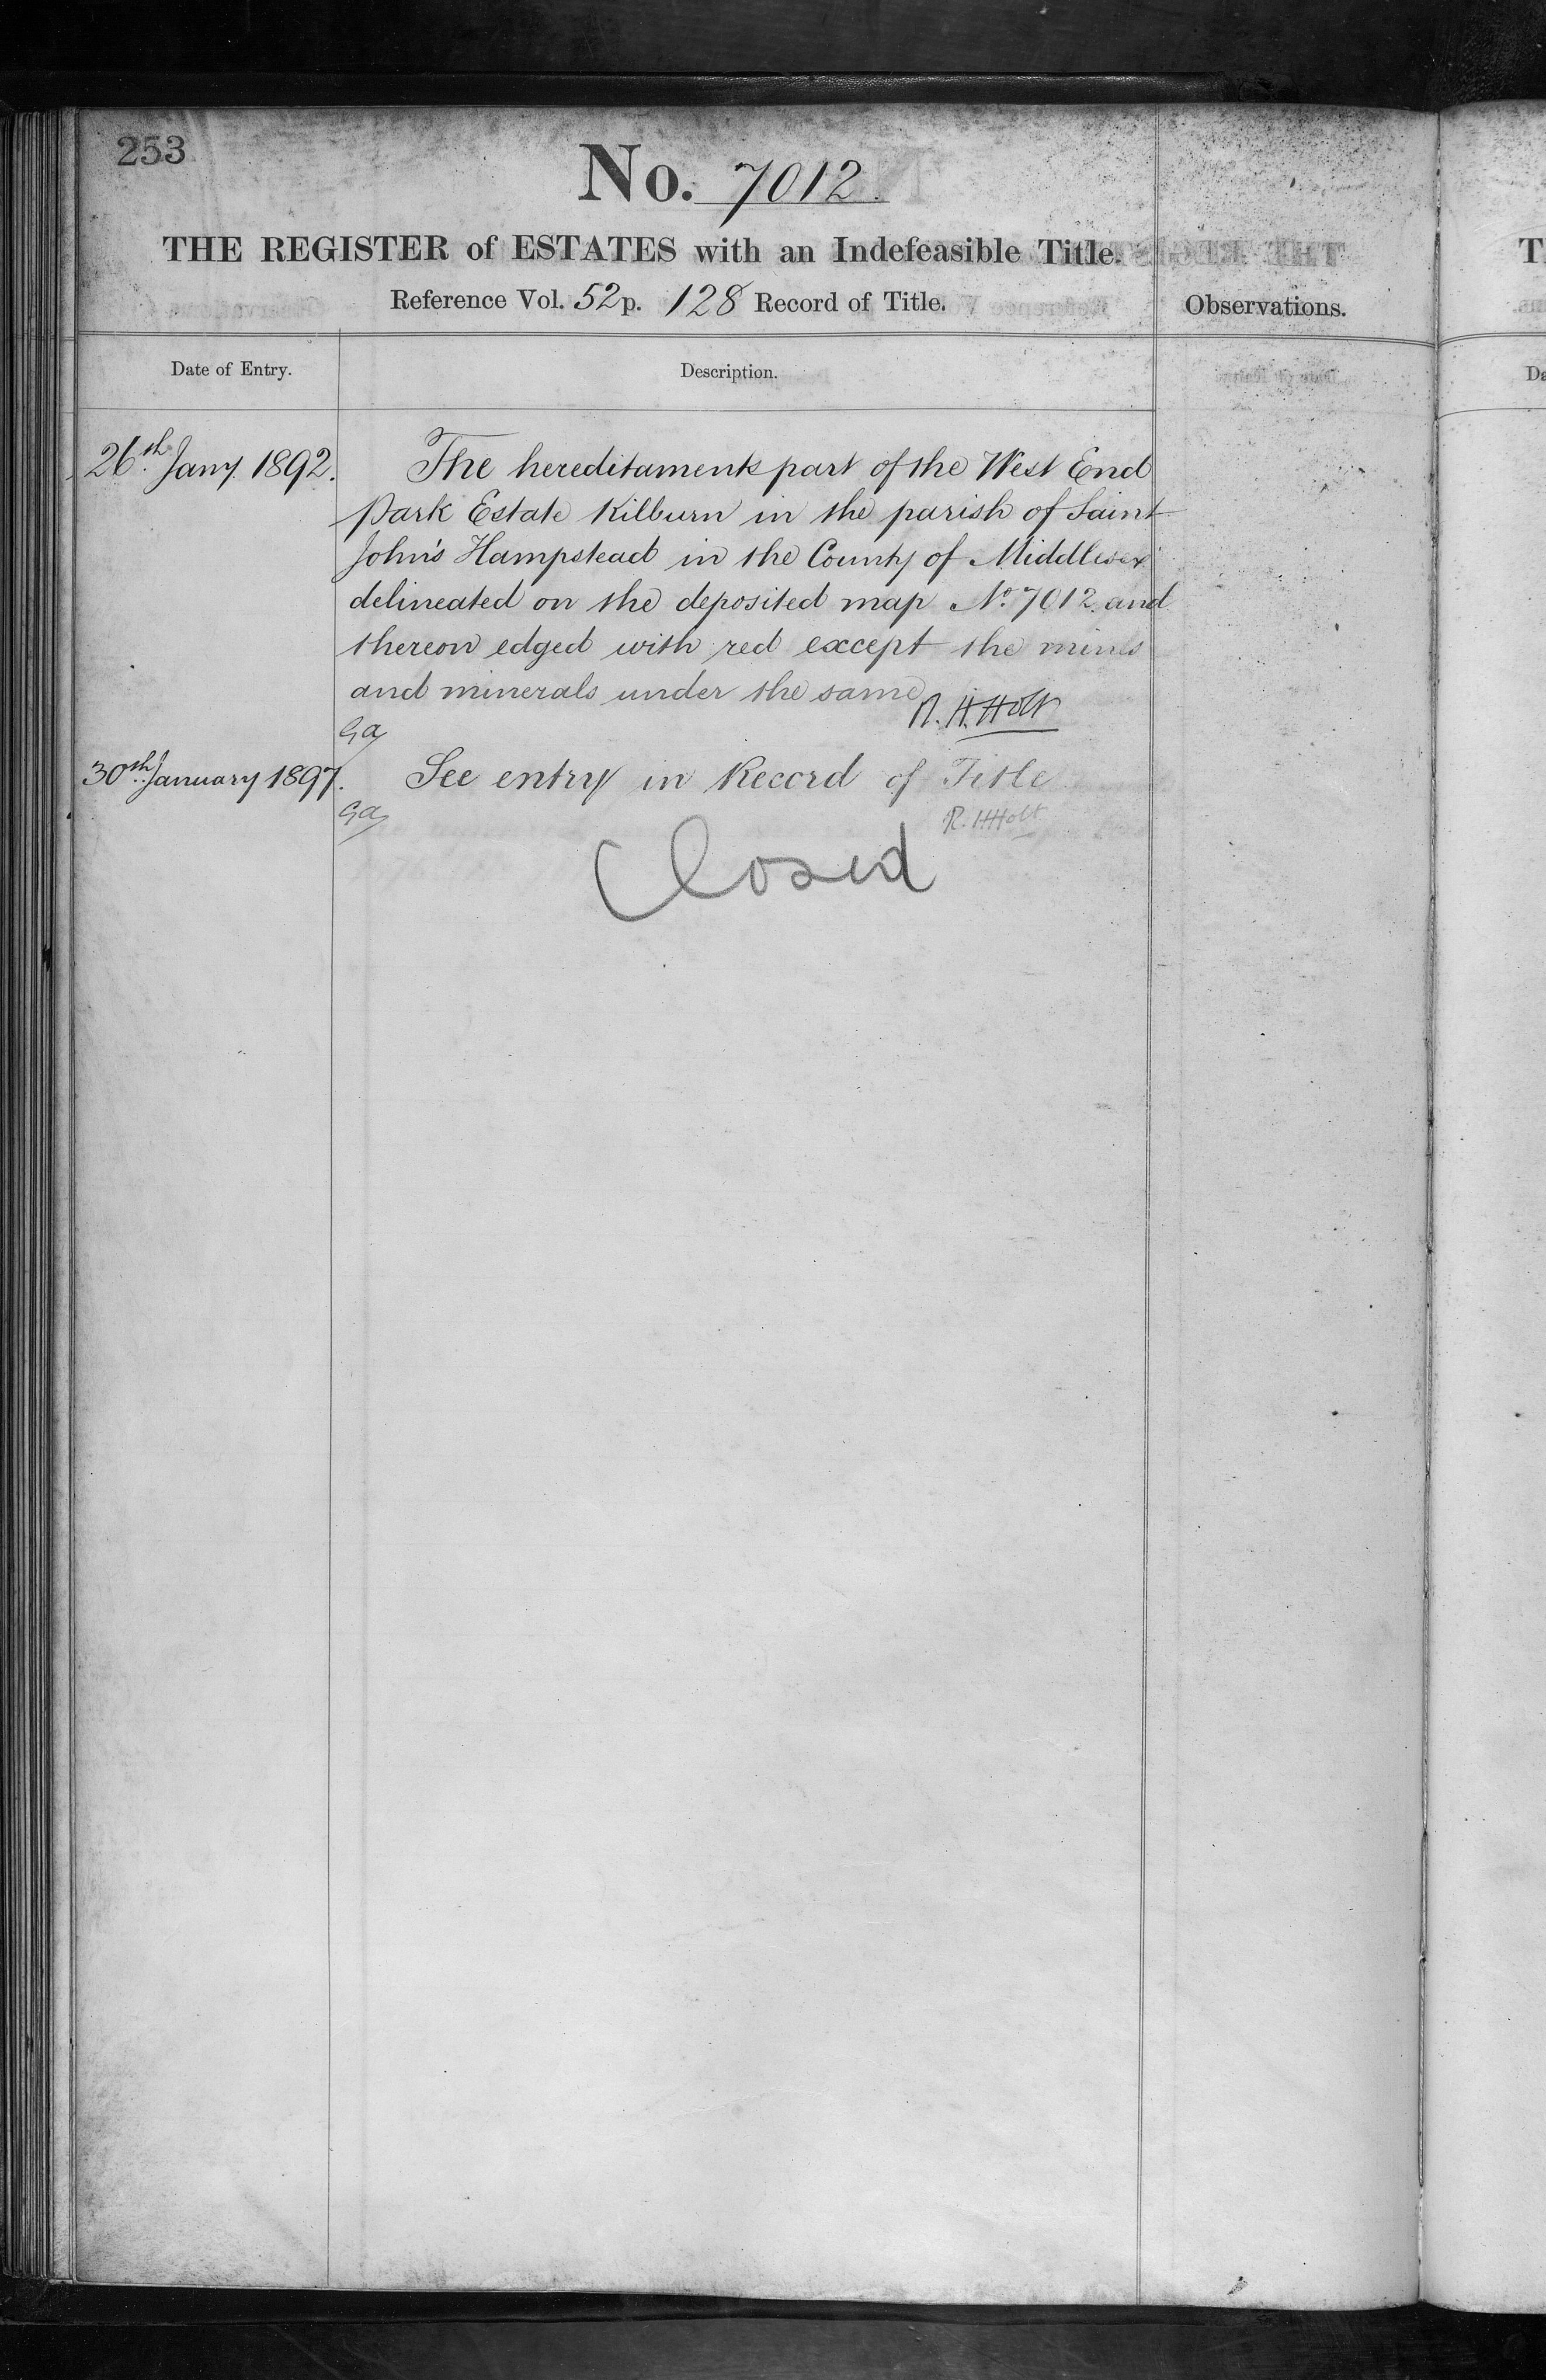 253
No. 7012.
THE REGISTER of ESTATES with an Indefeasible Title.
Reference Vol. 52 p. 128 Record of Title.
Observations.
Date of Entry.
Description.
26th Jany 1892.
The hereditaments part of the West End
Park Estate Kilburn in the parish of Saint
John's Hampstead in the County of Middlesex
delineated on the deposited map No. 7012 and
thereon edged with red except the mines
and minerals under the same
R. H. Holt
Ga
30th January 1897.
See entry in Record of Title
Ga
R. H Holt
Closed